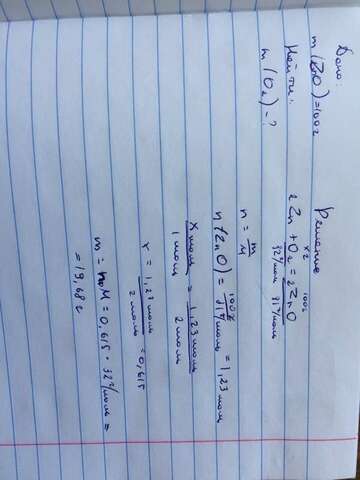 Дано:
m(ZnO)=100г
Найти:
m(O₂)-?
Решение
x г 100г
2Zn + O₂ = 2ZnO
32г/моль 81г/моль
n = m/M
n(ZnO) = 100г/81г/моль = 1,23 моль
x моль/1 моль = 1,23 моль/2 моль
x = 1,23 моль/2 моль = 0,615
m = n·M = 0,615 · 32г/моль =
= 19,68г